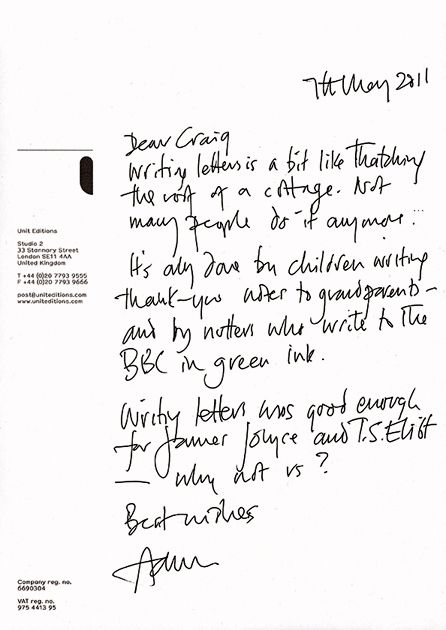 7th May 2011
Dear Craig
Writing letters is a bit like thatching
the roof of a cottage. Not
many people do it anymore...
It's only done by children writing
thank-you notes to grandparents -
and by nutters who write to the
BBC in green ink.
Writing letters was good enough
for James Joyce and T.S. Eliot
— why not us?
Best wishes
Unit Editions
Studio 2
33 Stannary Street
London SE11 4AA
United Kingdom
T +44 (0)20 7793 9555
F +44 (0)20 7793 9666
post@uniteditions.com
www.uniteditions.com
Company reg. no.
6690304
VAT reg. no.
975 4413 95